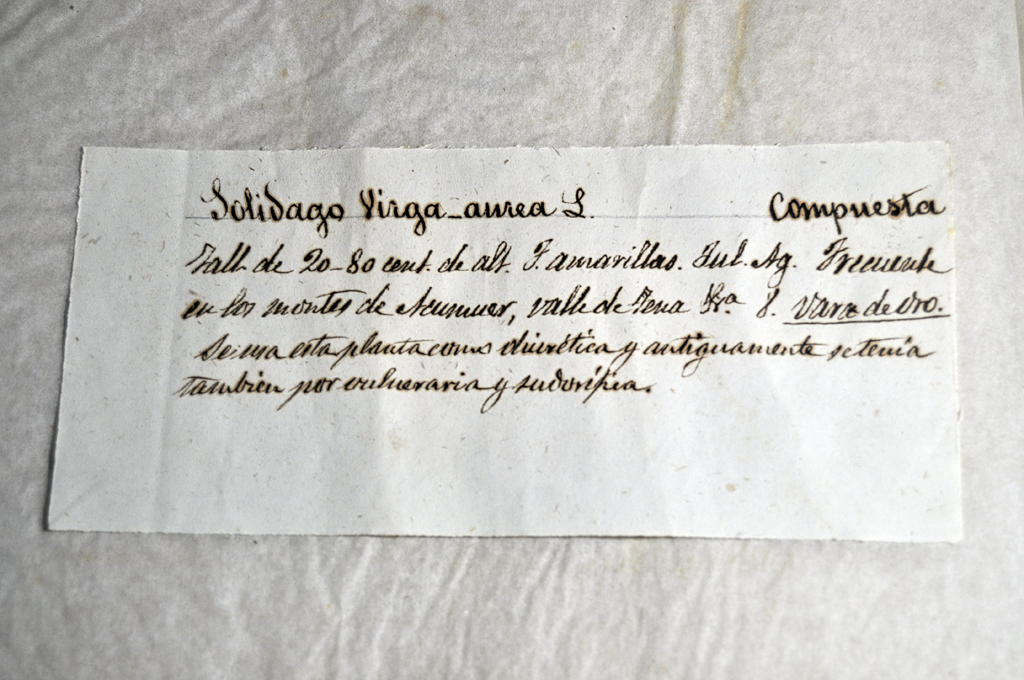 Solidago Virga-aurea L. Compuesta
Tall. de 20-80 cent. de alt. F. amarillas. Jul. Ag. Frecuente
en los montes de Acumuer, valle de Tena &
 Vara de oro.
Se usa esta planta como diurética y antiguamente se tenia
tambien por vulneraria y sudorífica.